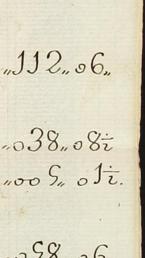 „112„ 06„
„038„ 08½
„005„ 01½.
„058„ 06